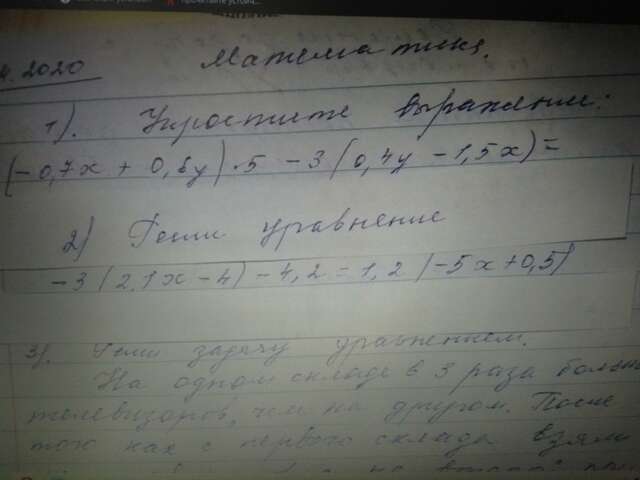 4.2020 Математика.
1). Упростите выражение:
(-0,7x + 0,6y)·5 - 3(0,4y - 1,5x)=
2) Реши уравнение
-3(2,1x-4)-4,2=1,2(-5x+0,5)
3). Реши задачу уравнением.
На одном складе в 3 раза больш
телевизоров, чем на другом. После
того как с первого склада взяли
на второй